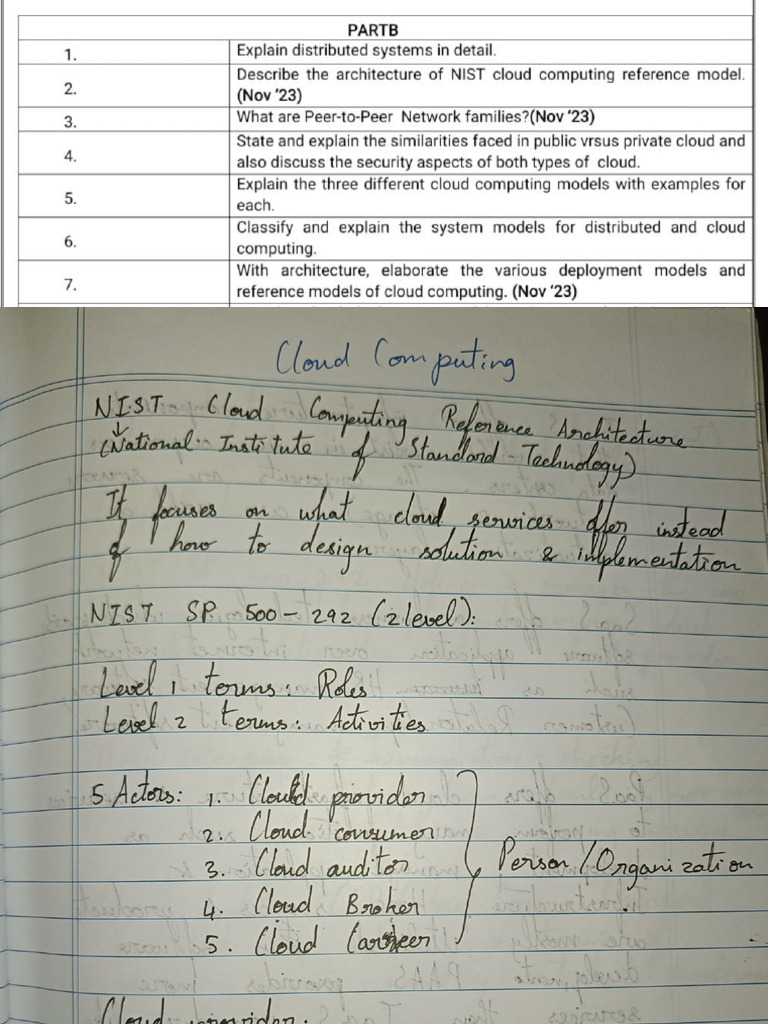 PARTB
1. Explain distributed systems in detail.
2. Describe the architecture of NIST cloud computing reference model.
(Nov '23)
3. What are Peer-to-Peer Network families?(Nov '23)
4. State and explain the similarities faced in public vrsus private cloud and
also discuss the security aspects of both types of cloud.
5. Explain the three different cloud computing models with examples for
each.
6. Classify and explain the system models for distributed and cloud
computing.
7. With architecture, elaborate the various deployment models and
reference models of cloud computing. (Nov '23)
Cloud Computing
NIST Cloud Computing Reference Architecture
(National Institute of Standard Technology)
It focuses on what cloud services offer instead
of how to design solution & implementation
NIST SP 500-292 (2 level):
Level 1 terms: Roles
Level 2 terms: Activities
5 Actors: 1. Cloud provider
2. Cloud consumer
3. Cloud auditor
Person / Organization
4. Cloud Broker
5. Cloud
Cloud provider: